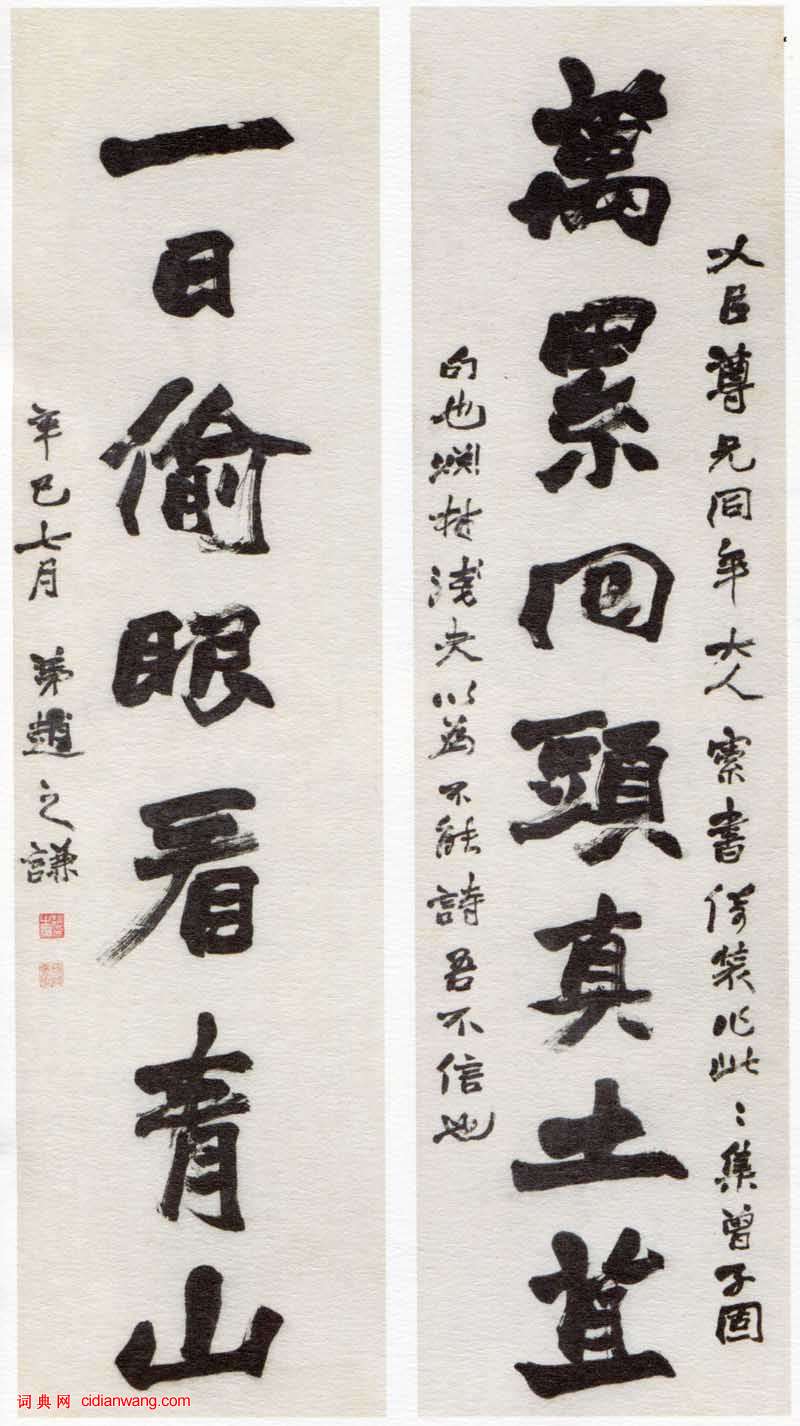 尊兄同年大人索書倚裝作此〻集曾子固
萬累回頭真土苴
句也淵材淺夫以為不能詩吾不信也
一日偷眼看青山
辛巳七月 弟趙之謙
词典网 cidianwang.com